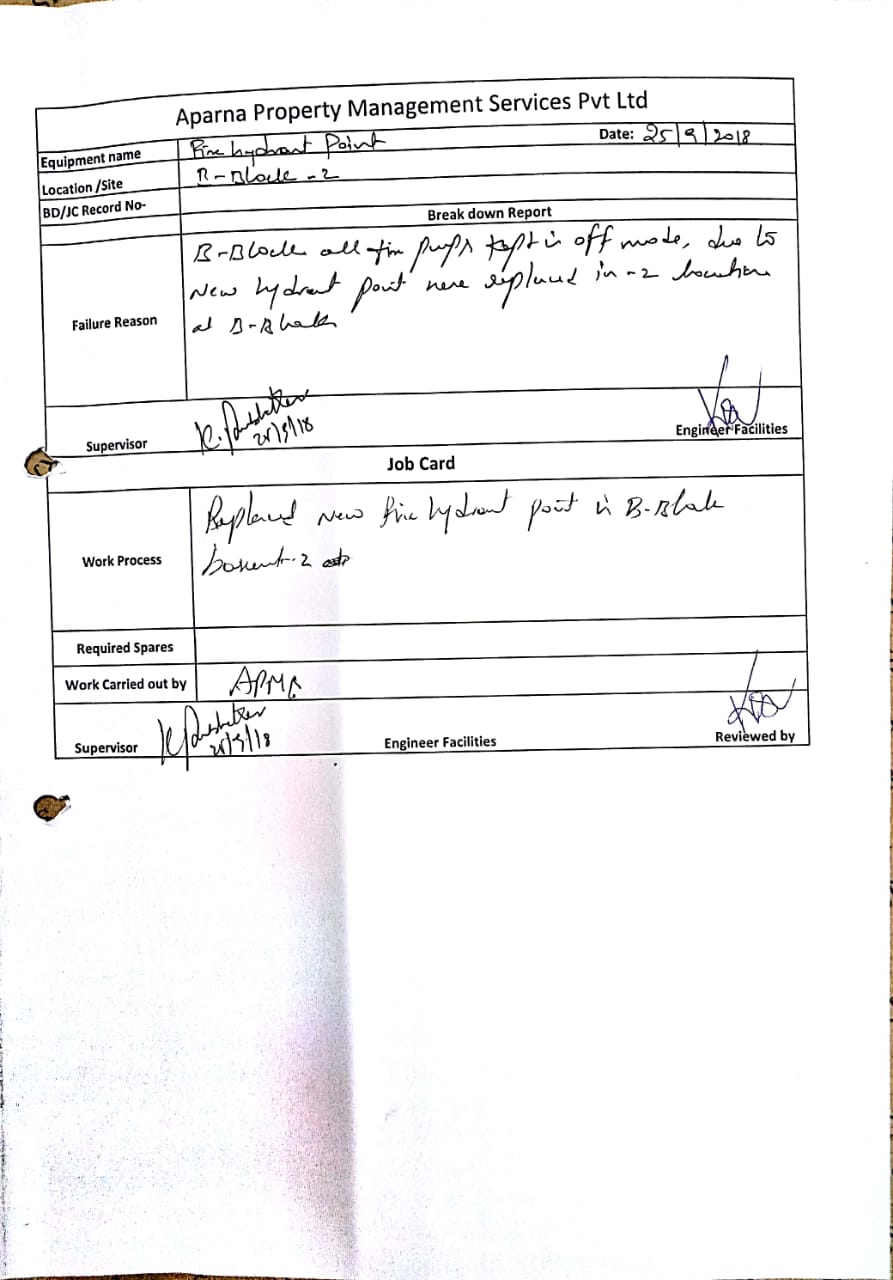 Aparna Property Management Services Pvt Ltd
Equipment name Fire hydrant Point Date: 25/9/2018
Location /Site B-Block -2
BD/JC Record No-
Break down Report
Failure Reason
B-Block all fire pumps kept in off mode, due to
New hydrant point were replaced in -2 location
at B-Block
Supervisor 25/9/18 Engineer Facilities
Job Card
Work Process
Replaced New fire hydrant point in B-Block
-2
Required Spares
Work Carried out by APMS
Supervisor 25/9/18 Engineer Facilities Reviewed by